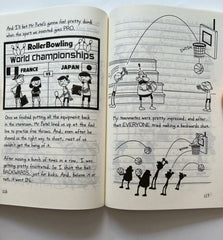 And I'll bet Mr. Patel's gonna feel pretty dumb
when the sport we invented goes PRO.
RollerBowling
World Championships
FRANCE VS JAPAN
Once we finished putting all the equipment back
in the classroom, Mr. Patel lined us up at the foul
line to practice free throws. And even after he
showed us the right way to shoot, most of us
couldn't get the hang of it.
After missing a bunch of times in a row, I was
getting pretty frustrated. So I shot the ball
BACKWARDS, just for kicks. And believe it or
not, it went IN.
My teammates were pretty impressed, and after
that EVERYONE tried making a backwards shot.